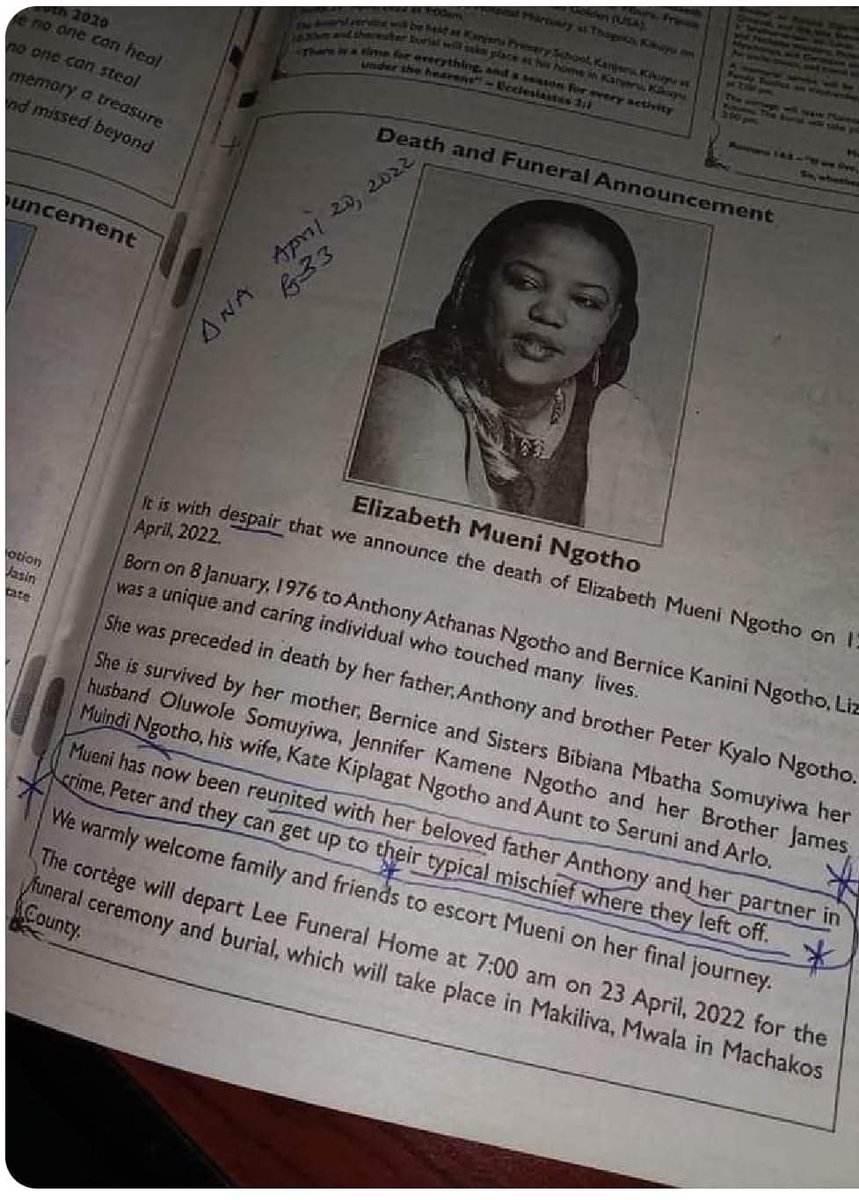 10th 2020
no one can heal
no one can steal
memory a treasure
nd missed beyond
ouncement
otion
Jasin
tate
(USA).
The funeral service will be held at Kanjeru Primary School, Kanjeru, Kikuyu at
10:30am and thereafter burial will take place at his home in Kanjeru, Kikuyu.
"There is a time for everything, and a season for every activity
under the heavens" – Ecclesiastes 3:1
Death and Funeral Announcement
DNA April 20, 2022
Pg 33
Elizabeth Mueni Ngotho
It is with despair that we announce the death of Elizabeth Mueni Ngotho on
April, 2022.
Born on 8 January, 1976 to Anthony Athanas Ngotho and Bernice Kanini Ngotho, Liz
was a unique and caring individual who touched many lives.
She was preceded in death by her father, Anthony and brother Peter Kyalo Ngotho.
She is survived by her mother, Bernice and Sisters Bibiana Mbatha Somuyiwa her
husband Oluwole Somuyiwa, Jennifer Kamene Ngotho and her Brother James
Muindi Ngotho, his wife, Kate Kiplagat Ngotho and Aunt to Seruni and Arlo.
Mueni has now been reunited with her beloved father Anthony and her partner in
crime, Peter and they can get up to their typical mischief where they left off.
We warmly welcome family and friends to escort Mueni on her final journey.
The cortège will depart Lee Funeral Home at 7:00 am on 23 April, 2022 for the
funeral ceremony and burial, which will take place in Makiliva, Mwala in Machakos
County.